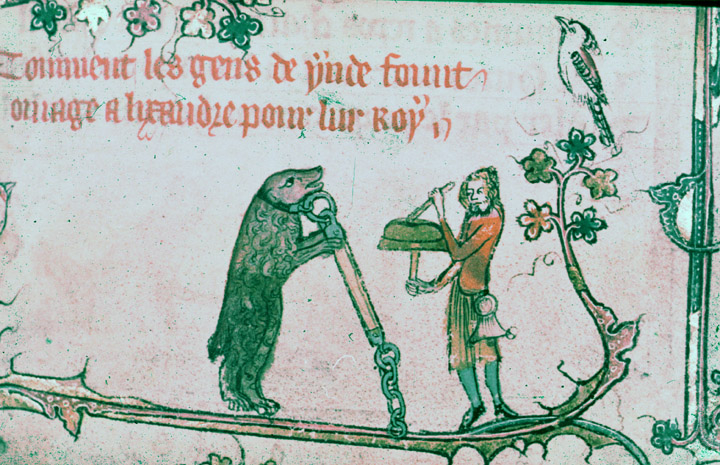 Comment les gens de ẏnde fount
omage a lixandre pour lur Roẏ